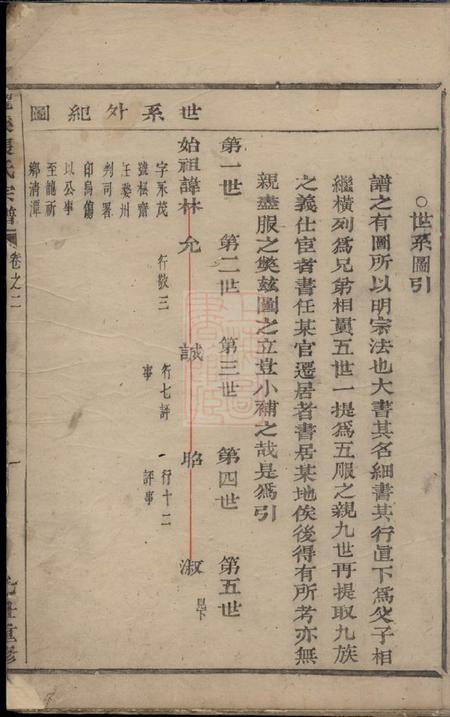 ○世系圖引
譜之有圖所以明宗法也大書其名細書其行直下為父子相
繼橫列為兄弟相貫五世一提為五服之親九世再提取九族
之義仕宦者書任某官遷居者書居某地俟後得有所考亦無
親盡服之斁茲圖之立豈小補之哉是為引
世系外紀圖
第一世 第二世 第三世 第四世 第五世
始祖諱林 允 誠 昭 淑 見下
字永茂 行敬三 行七評事 行十二評事
號極齋
任婺州
判司署
印烏傷
以公事
至龍祈
鄉清潭
氏宗譜 卷之二
一
重修